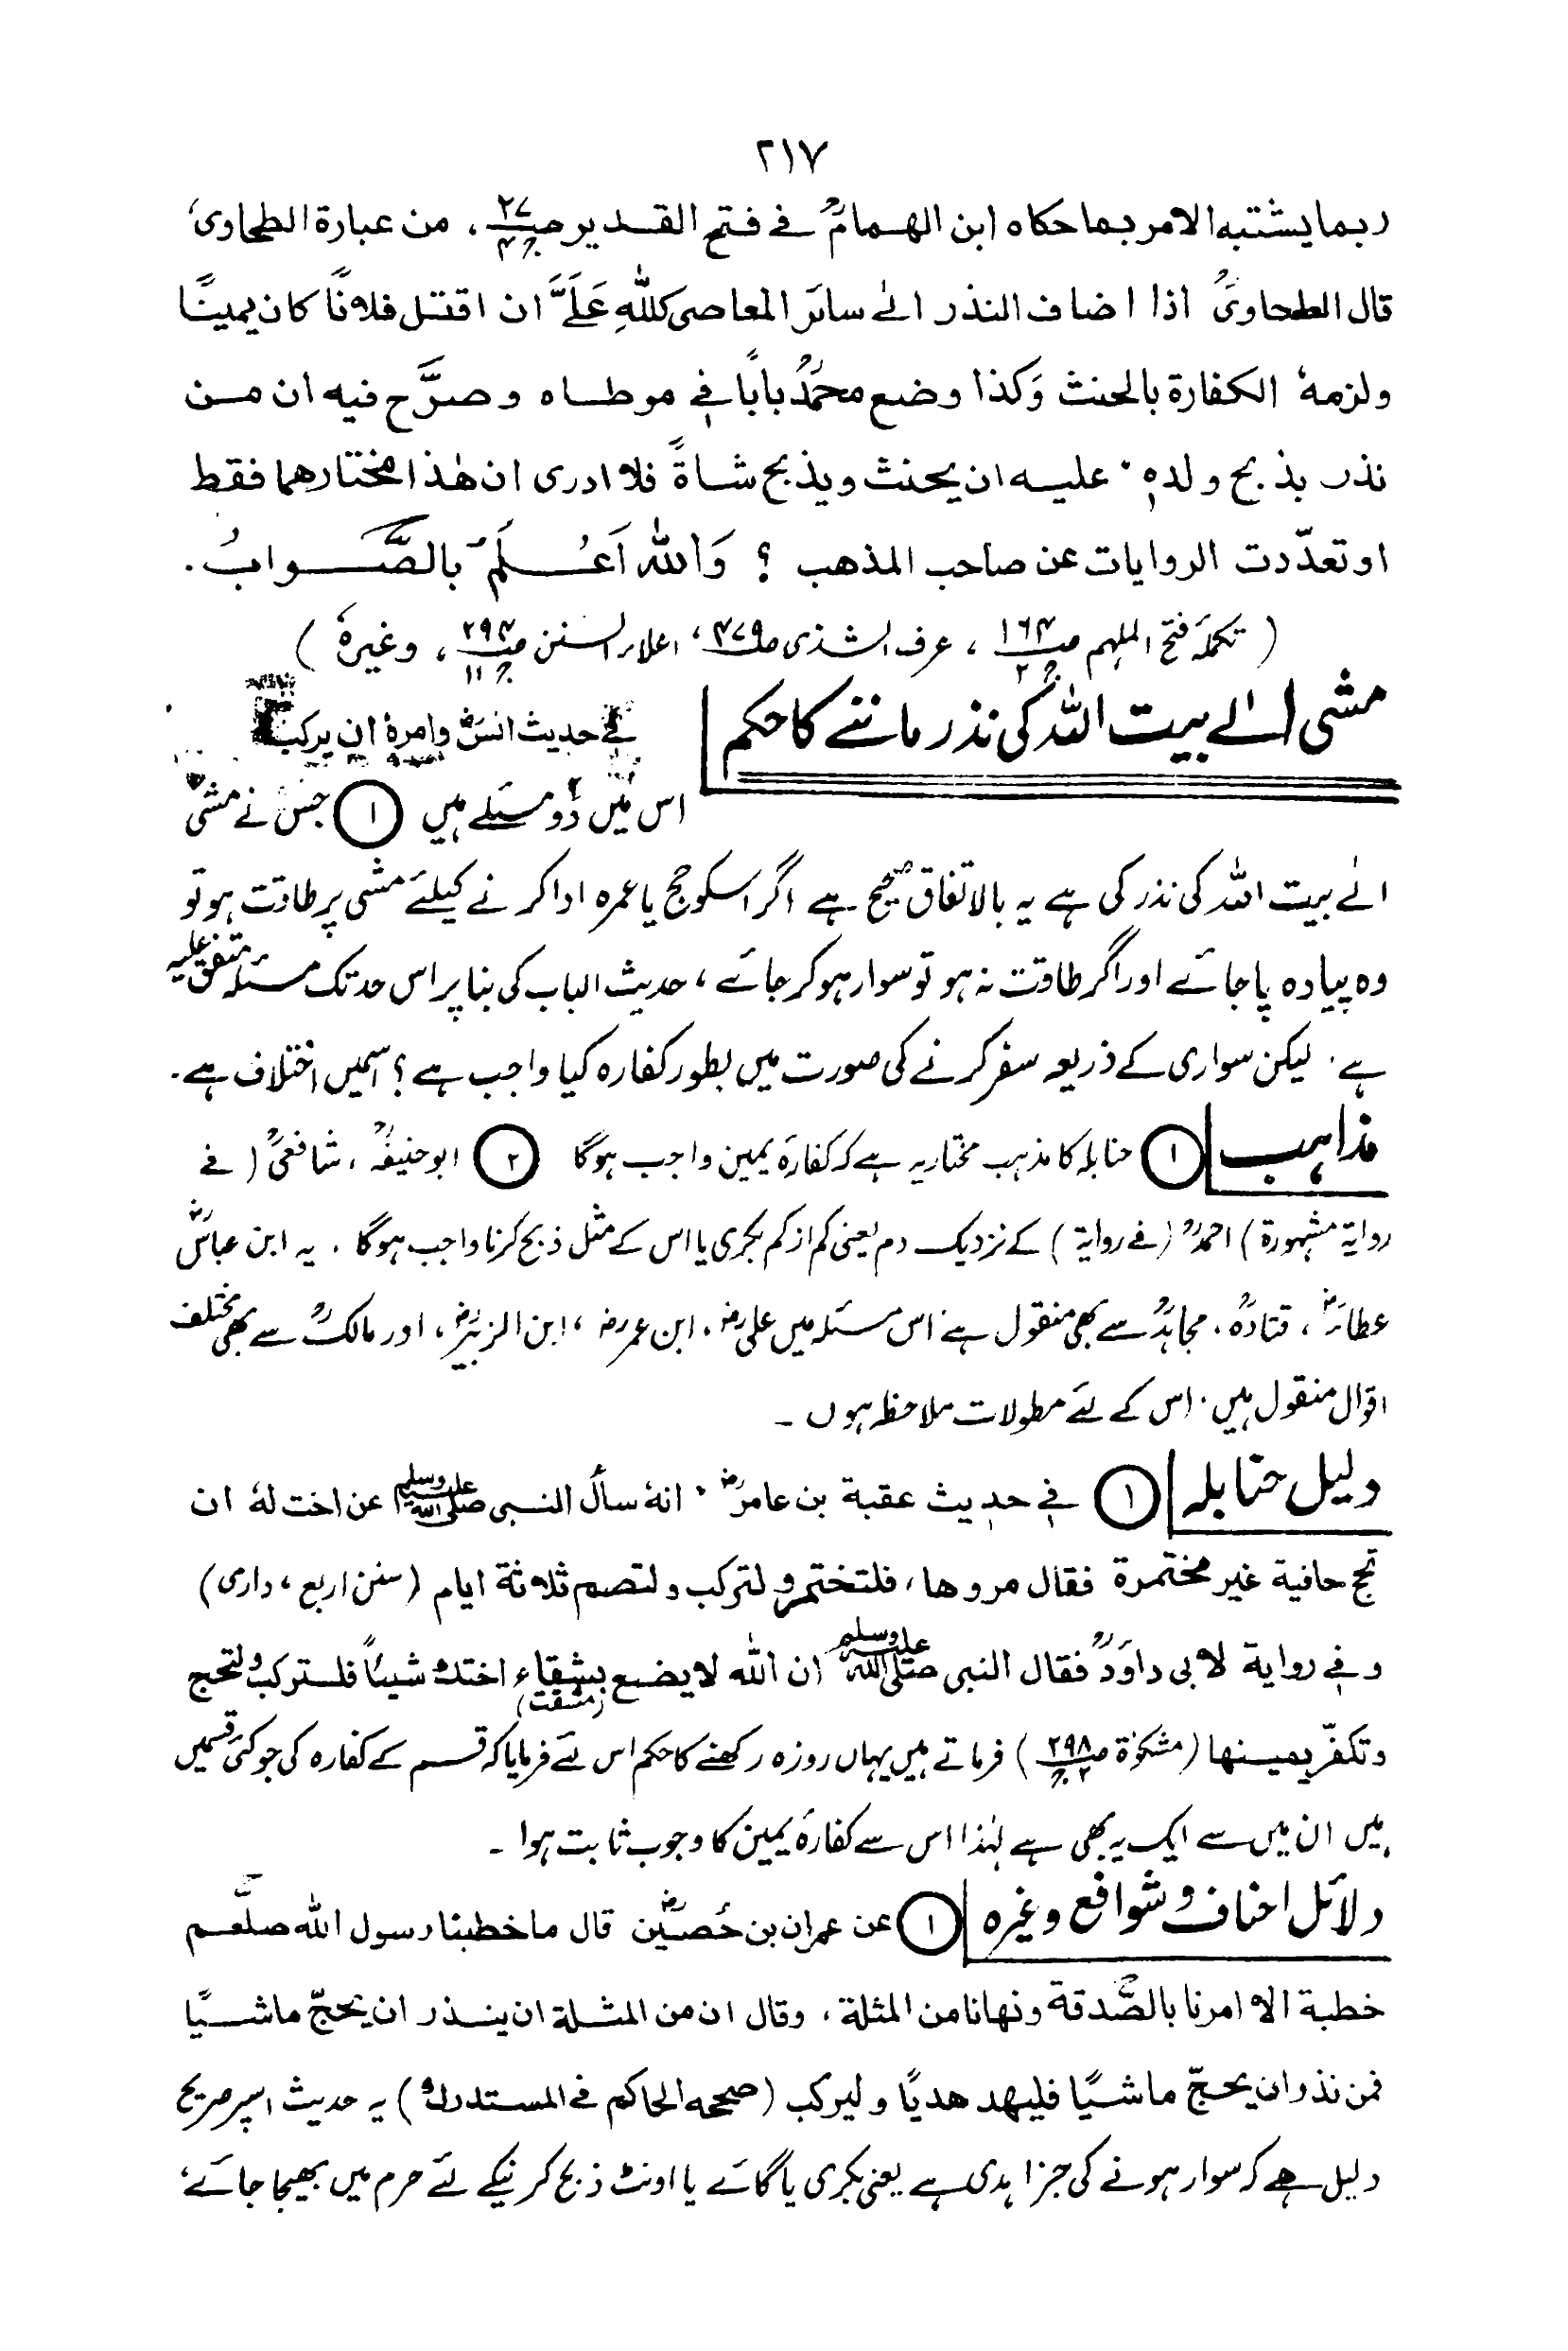 ۲۱۷
ربما يشتبه الامر بما حكاه ابن الهمامؒ فے فتح القدير صـ۲۷ ج۴، من عبارة الطحاوى
قال الطحاوىؒ اذا اضاف النذر الے سائر المعاصى كللّٰهِ عَلَیَّ ان اقتل فلانًا كان يمينًا
ولزمهٗ الكفارة بالحنث وَكذا وضع محمدؒ بابًا فے موطاه وصرَّح فيه ان من
نذر بذبح ولدهٖ عليه ان يحنث ويذبح شاةً فلا ادرى ان هٰذا مختارهما فقط
او تعدّدت الروايات عن صاحب المذهب ؟ وَاللّٰه اَعْلَمُ بالصَّوابُ .
( تکملۂ فتح الملہم صـ۱۶۴ ج۲ ، عرف الشذی صـ۴۷۹، اعلاء السنن صـ۲۹۴ ج۱۱، وغیرہٗ )
مشی اِلےٰ بیت اللہ کی نذر ماننے کا حکم
فے حديث انسؓ وامرهٗ ان يركب
اس میں دُو مسئلے ہیں (۱) جس نے مشی
الےٰ بیت اللہ کی نذر کی ہے یہ بالاتفاق صحیح ہے اگر اسکو حج یا عمرہ ادا کرنے کیلئے مشی پر طاقت ہو تو
وہ پیادہ پا جائے اور اگر طاقت نہ ہو تو سوار ہو کر جائے ، حدیث الباب کی بنا پر اس حد تک مسئلہ متفق علیہ
ہے . لیکن سواری کے ذریعہ سفر کرنے کی صورت میں بطور کفارہ کیا واجب ہے ؟ اسمیں اختلاف ہے۔
مذاہب (۱) حنابلہ کا مذہب مختار یہ ہے کہ کفارۂ یمین واجب ہوگا (۲) ابوحنیفہؒ ، شافعیؒ ( فے
روایة مشہورة ) احمدؒ ( فے روایة ) کے نزدیک دم یعنی کم از کم بکری یا اس کے مثل ذبح کرنا واجب ہوگا . یہ ابن عباسؓ
عطاءؒ ، قتادہؒ ، مجاہدؒ سے بھی منقول ہے اس مسئلہ میں علیؓ ، ابن عمرؓ ، ابن الزبیرؓ ، اور مالکؒ سے بھی مختلف
اقوال منقول ہیں . اس کے لئے مطولات ملاحظہ ہوں ۔
دلیل حنابلہ (۱) فے حديث عقبة بن عامرؓ انهٗ سأل النبى صلى الله عليه وسلم عن اخت لهٗ ان
تحج حافية غير مختمرة فقال مروها ، فلتختمر ولتركب ولتصم ثلاثة ايام (سنن اربع ، دارمی)
وفے رواية لابى داوَدؒ فقال النبى صلى الله عليه وسلم ان اللّٰه لا يضع بشقاء (مشقت) اختك شيئاً فلتركب ولتحج
وتكفّر يمينها (مشکوٰۃ صـ۲۹۸ ج۲ ) فرماتے ہیں یہاں روزہ رکھنے کا حکم اس لئے فرمایا کہ قسم کے کفارہ کی جو کئی قسمیں
ہیں ان میں سے ایک یہ بھی ہے لہٰذا اس سے کفارۂ یمین کا وجوب ثابت ہوا ۔
دلائل احناف و شوافع وغیرہ (۱) عن عمران بن حُصينؓ قال ما خطبنا رسول اللّٰه صلعم
خطبة الا امرنا بالصّدقة ونهانا من المثلة ، وقال ان من المثلة ان ينذر ان يحجّ ماشيًا
فمن نذر ان يحجّ ماشيًا فليهد هديًا وليركب (صححه الحاكم فے المستدرك) یہ حدیث اسپر صریح
دلیل ہے کہ سوار ہونے کی جزا ہدی ہے یعنی بکری یا گائے یا اونٹ ذبح کرنیکے لئے حرم میں بھیجا جائے ،